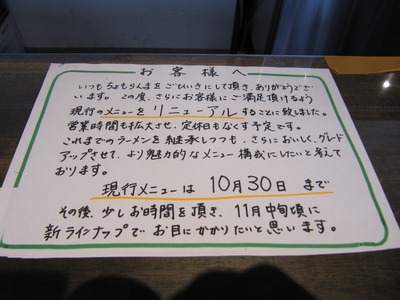 お客様へ
いつもちょもらんまをごひいきにして頂き、ありがとうござ
います。この度、さらにお客様にご満足頂けるよう
現行のメニューをリニューアルすることに致しました。
営業時間も拡大させ、定休日もなくす予定です。
これまでのラーメンを継承しつつも、さらにおいしく、グレード
アップさせて、より魅力的なメニュー構成にしたいと考えて
おります。
現行メニューは 10月30日 まで
その後、少しお時間を頂き、11月中旬頃に
新ラインナップで お目にかかりたいと思います。